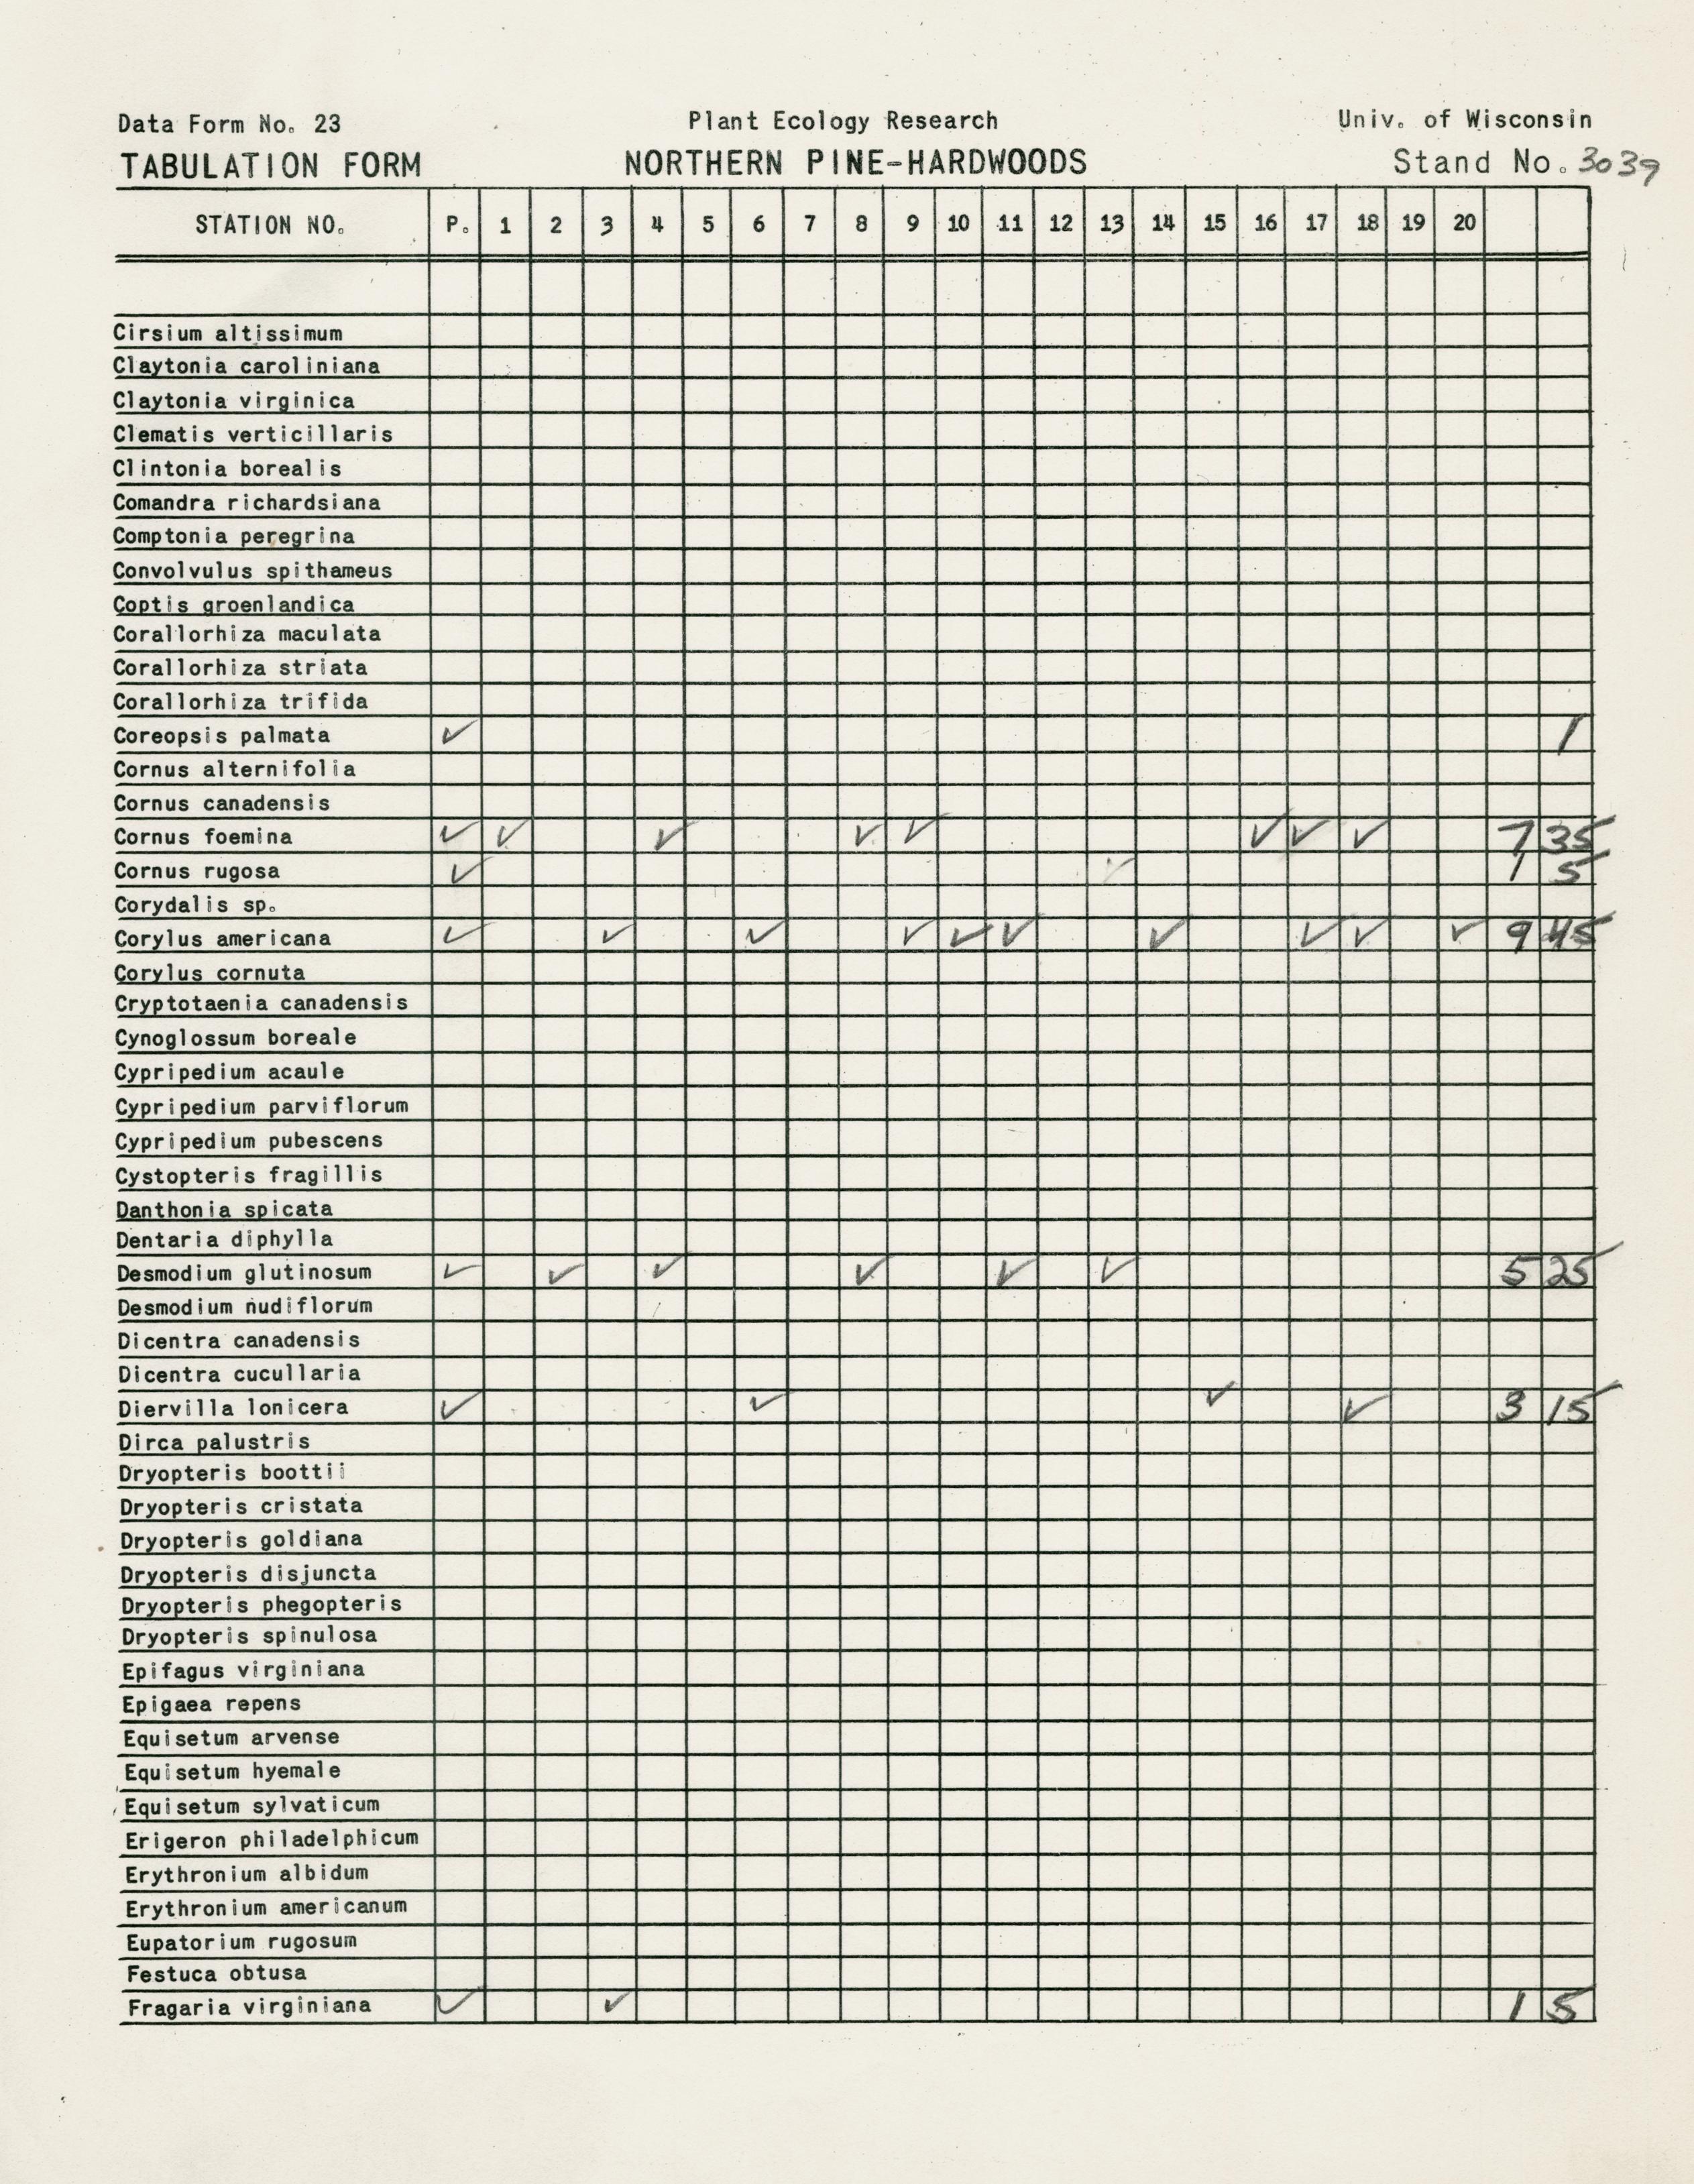 Data Form No. 23 Plant Ecology Research Univ. of Wisconsin
TABULATION FORM NORTHERN PINE-HARDWOODS Stand No. 3039
STATION NO. P. 1 2 3 4 5 6 7 8 9 10 11 12 13 14 15 16 17 18 19 20
Cirsium altissimum
Claytonia caroliniana
Claytonia virginica
Clematis verticillaris
Clintonia borealis
Comandra richardsiana
Comptonia peregrina
Convolvulus spithameus
Coptis groenlandica
Corallorhiza maculata
Corallorhiza striata
Corallorhiza trifida
Coreopsis palmata ✓ 1
Cornus alternifolia
Cornus canadensis
Cornus foemina ✓ ✓ ✓ ✓ ✓ ✓ ✓ ✓ 7 35
Cornus rugosa ✓ ✓ 1 5
Corydalis sp.
Corylus americana ✓ ✓ ✓ ✓ ✓ ✓ ✓ ✓ ✓ ✓ 9 45
Corylus cornuta
Cryptotaenia canadensis
Cynoglossum boreale
Cypripedium acaule
Cypripedium parviflorum
Cypripedium pubescens
Cystopteris fragillis
Danthonia spicata
Dentaria diphylla
Desmodium glutinosum ✓ ✓ ✓ ✓ ✓ ✓ 5 25
Desmodium nudiflorum
Dicentra canadensis
Dicentra cucullaria
Diervilla lonicera ✓ ✓ ✓ ✓ 3 15
Dirca palustris
Dryopteris boottii
Dryopteris cristata
Dryopteris goldiana
Dryopteris disjuncta
Dryopteris phegopteris
Dryopteris spinulosa
Epifagus virginiana
Epigaea repens
Equisetum arvense
Equisetum hyemale
Equisetum sylvaticum
Erigeron philadelphicum
Erythronium albidum
Erythronium americanum
Eupatorium rugosum
Festuca obtusa
Fragaria virginiana ✓ ✓ 1 5